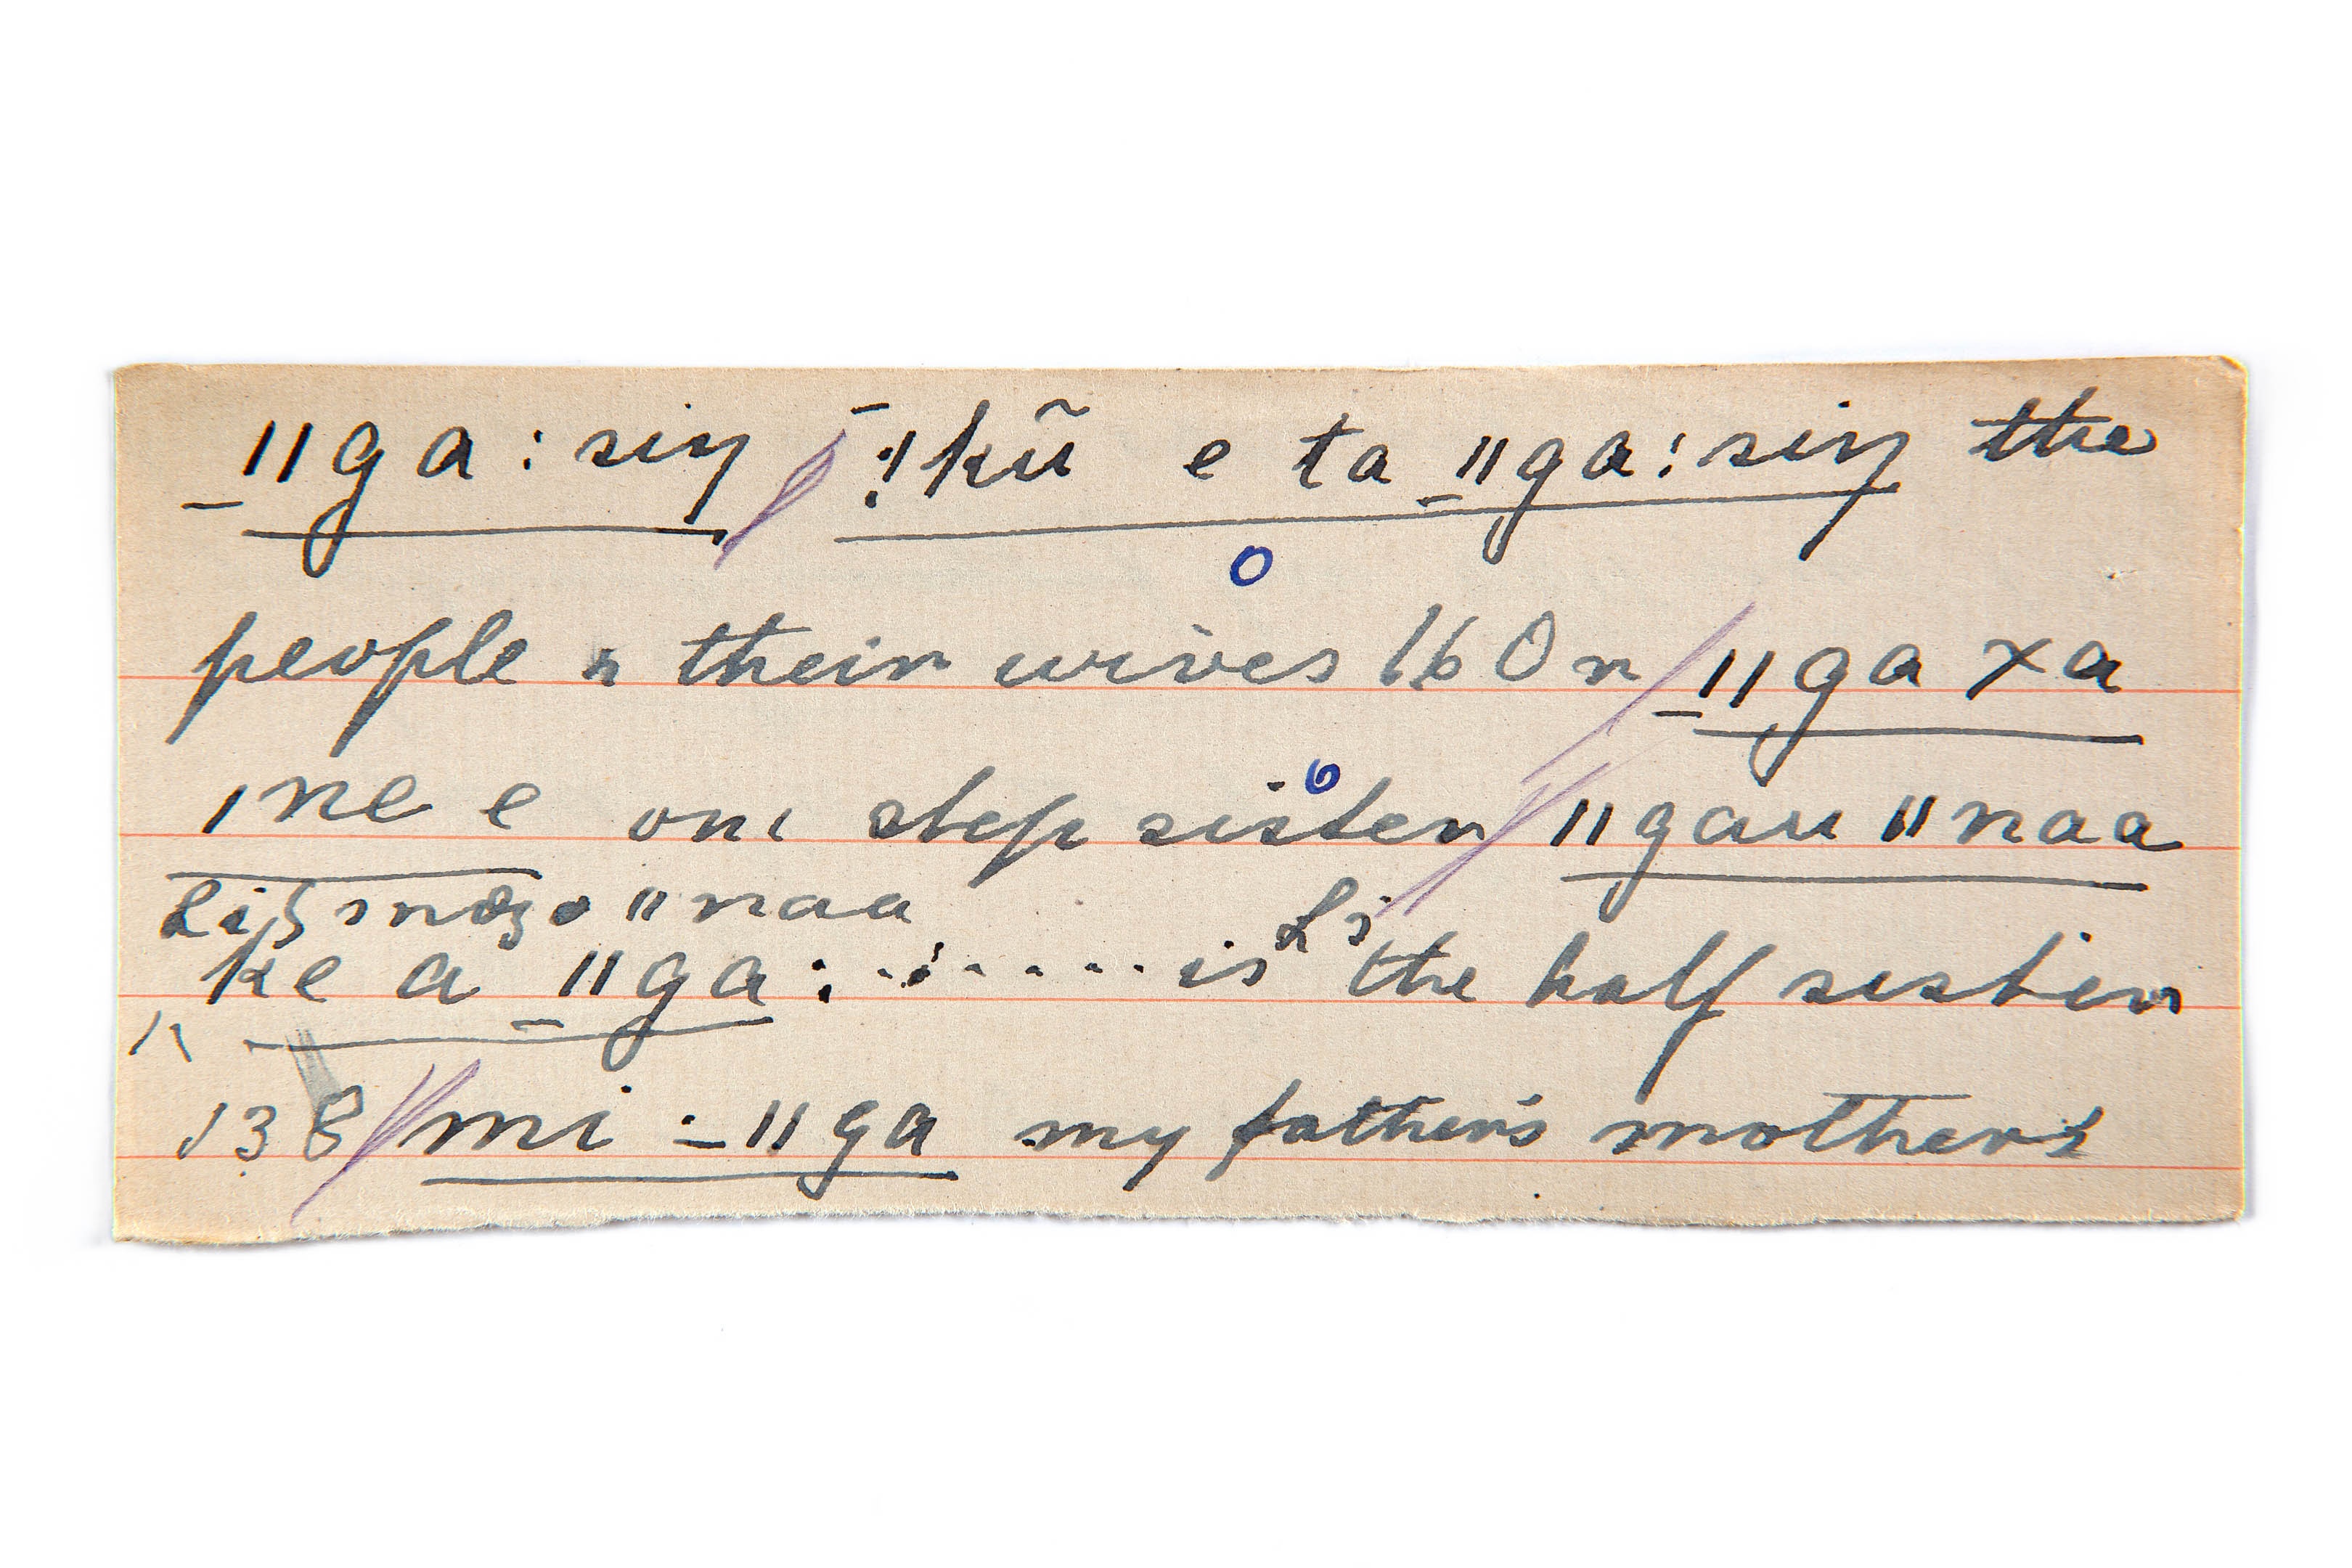 _ǁga:siŋ / ¯!kũ e ta _ǁga:siŋ the
people n their wives 160n / _ǁga xa
ǀne e our step sister / ǁgau ǁnaa
ǁnaa
ke a _ǁga: . . . . . . is the half sister
138 / mi :_ǁga my father's mothers